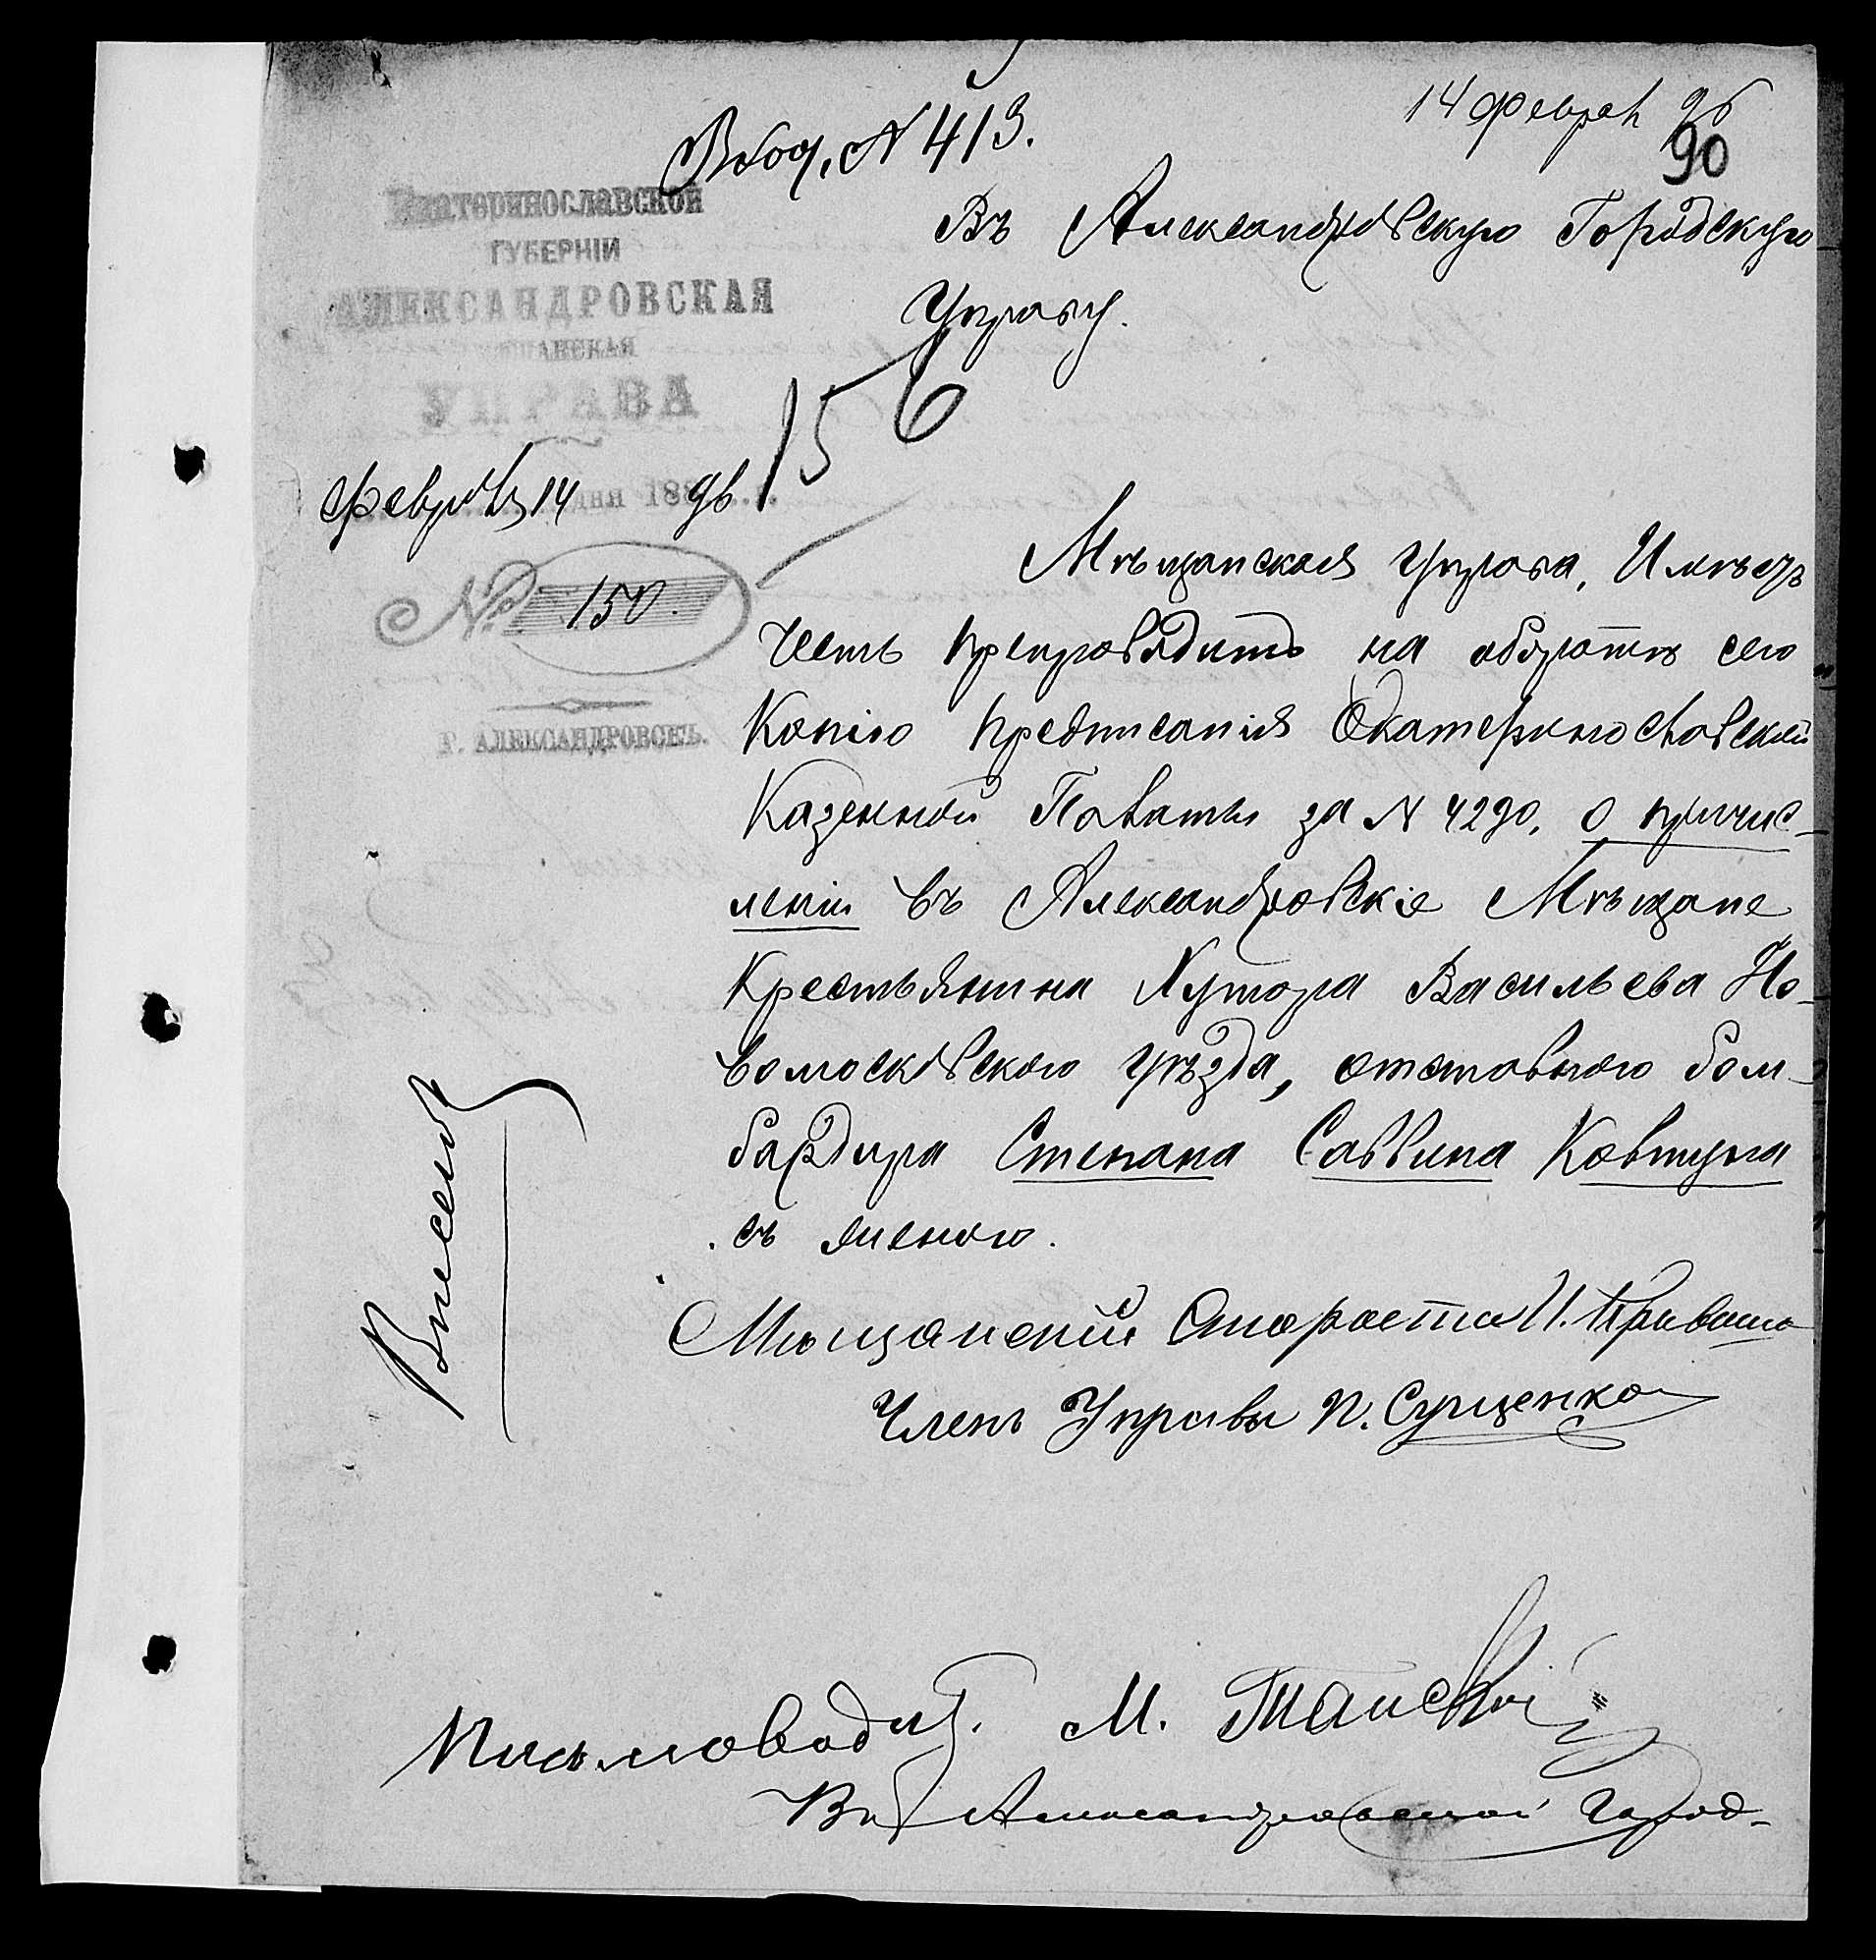 Вход. № 413.
14 феврал 96
90
Екатеринославской
ГУБЕРНІИ
АЛЕКСАНДРОВСКАЯ
МѢЩАНСКАЯ
УПРАВА
Февраля 14 дня 188 96
№ 150.
Г. АЛЕКСАНДРОВСКЪ.
Въ Александровскую Городскую
Управу.
156
Мѣщанская Управа, Имѣетъ
честь препроводить на оборотѣ сего
Копію предписанія Екатеринославской
Казенной Палаты за № 4290, о причис-
леніи въ Александровскіе Мѣщане
Крестьянина Хутора Васильева Но-
вомосковского уѣзда, отставного бом-
бардира Степана Саввина Ковтуна
съ женою.
Внесенъ
Мѣщанскій Староста И.
Членъ Управы П. Сущенко
Письмоводит. М.
Въ Александровской Город-